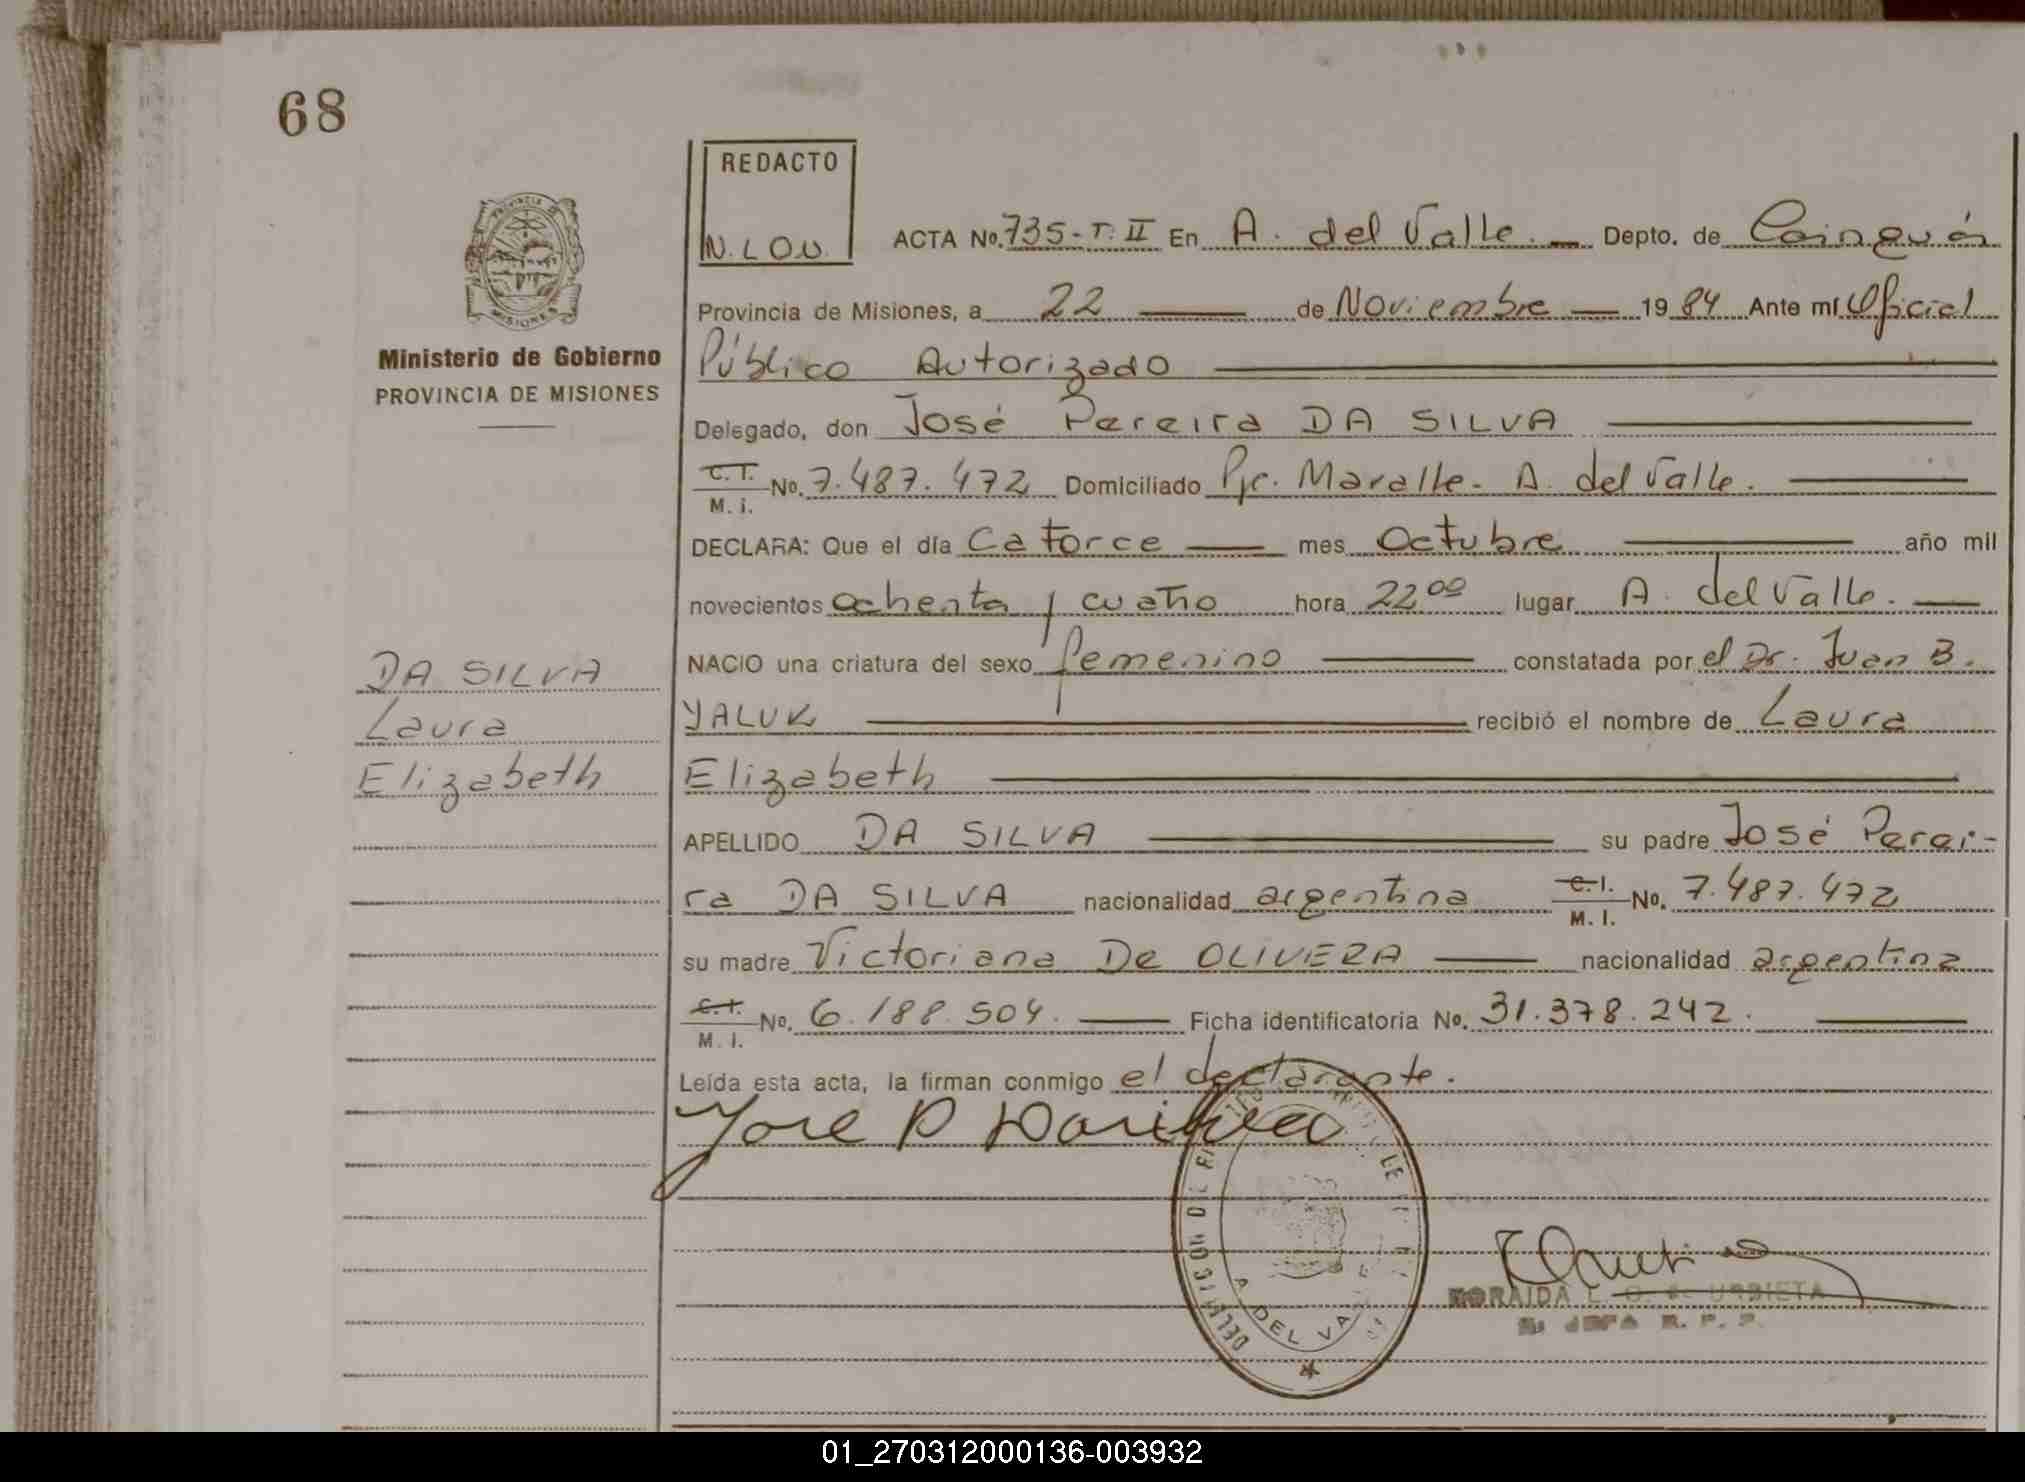 68
REDACTO
N. LOU.
PROVINCIA DE
MISIONES
Ministerio de Gobierno
PROVINCIA DE MISIONES
ACTA No. 735-T. II En A. del Valle. Depto. de Cainguás
Provincia de Misiones, a 22 de Noviembre 1984 Ante mí Oficial
Público Autorizado
Delegado, don José Pereira DA SILVA
C. I. M. I. No. 7.487.472 Domiciliado Pje. Maralle. A. del Valle.
DECLARA: Que el día Catorce mes Octubre año mil
novecientos ochenta y cuatro hora 22.00 lugar A. del Valle.
NACIO una criatura del sexo femenino constatada por el Dr. Juan B.
YALUK recibió el nombre de Laura
Elizabeth
DA SILVA
Laura
Elizabeth
APELLIDO DA SILVA su padre José Perei-
ra DA SILVA nacionalidad argentina C. I. M. I. No. 7.487.472
su madre Victoriana De OLIVERA nacionalidad argentina
C. I. M. I. No. 6.188.504. Ficha identificatoria No. 31.378.242.
Leída esta acta, la firman conmigo el declarante.
Jose P Dasilva
DELEGACION DE
A DEL VALLE
URBIETA
01_270312000136-003932